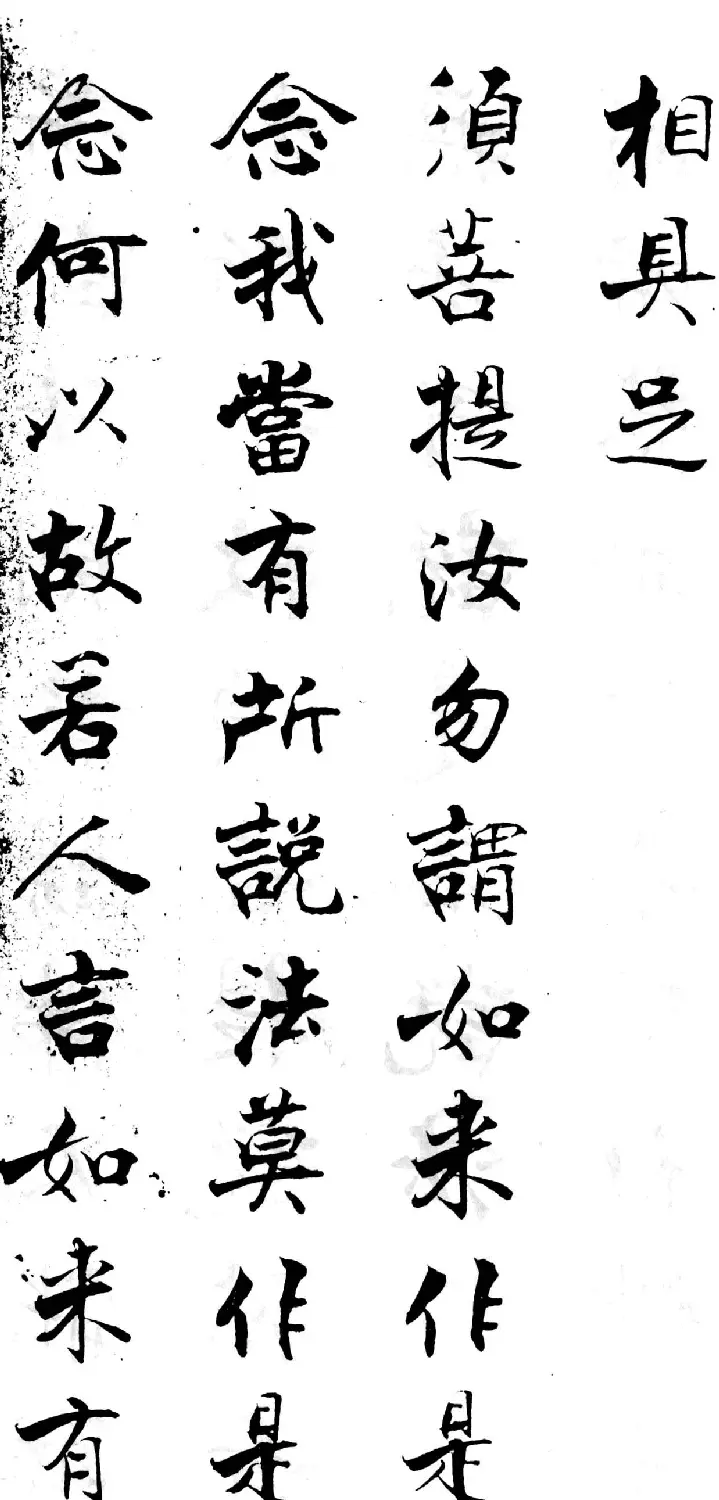 相具足
須菩提汝勿謂如来作是
念我當有所說法莫作是
念何以故若人言如来有